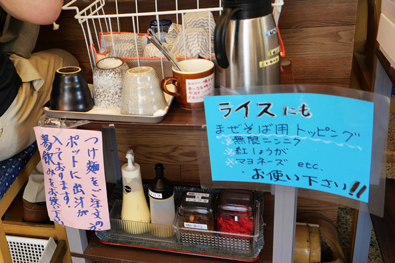 ライスにも
まぜそば用トッピング
無限ニンニク
紅しょうが
マヨネーズ etc.
お使い下さい!!
つけ麺をご注文の方
ポットに出汁が
入っております。